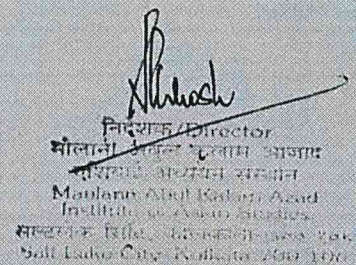 निदेशक/Director
मौलाना अबुल कलाम आजाद
एशियाई अध्ययन संस्थान
Maulana Abul Kalam Azad
Institute of Asian Studies
Salt Lake City, Kolkata 700 106